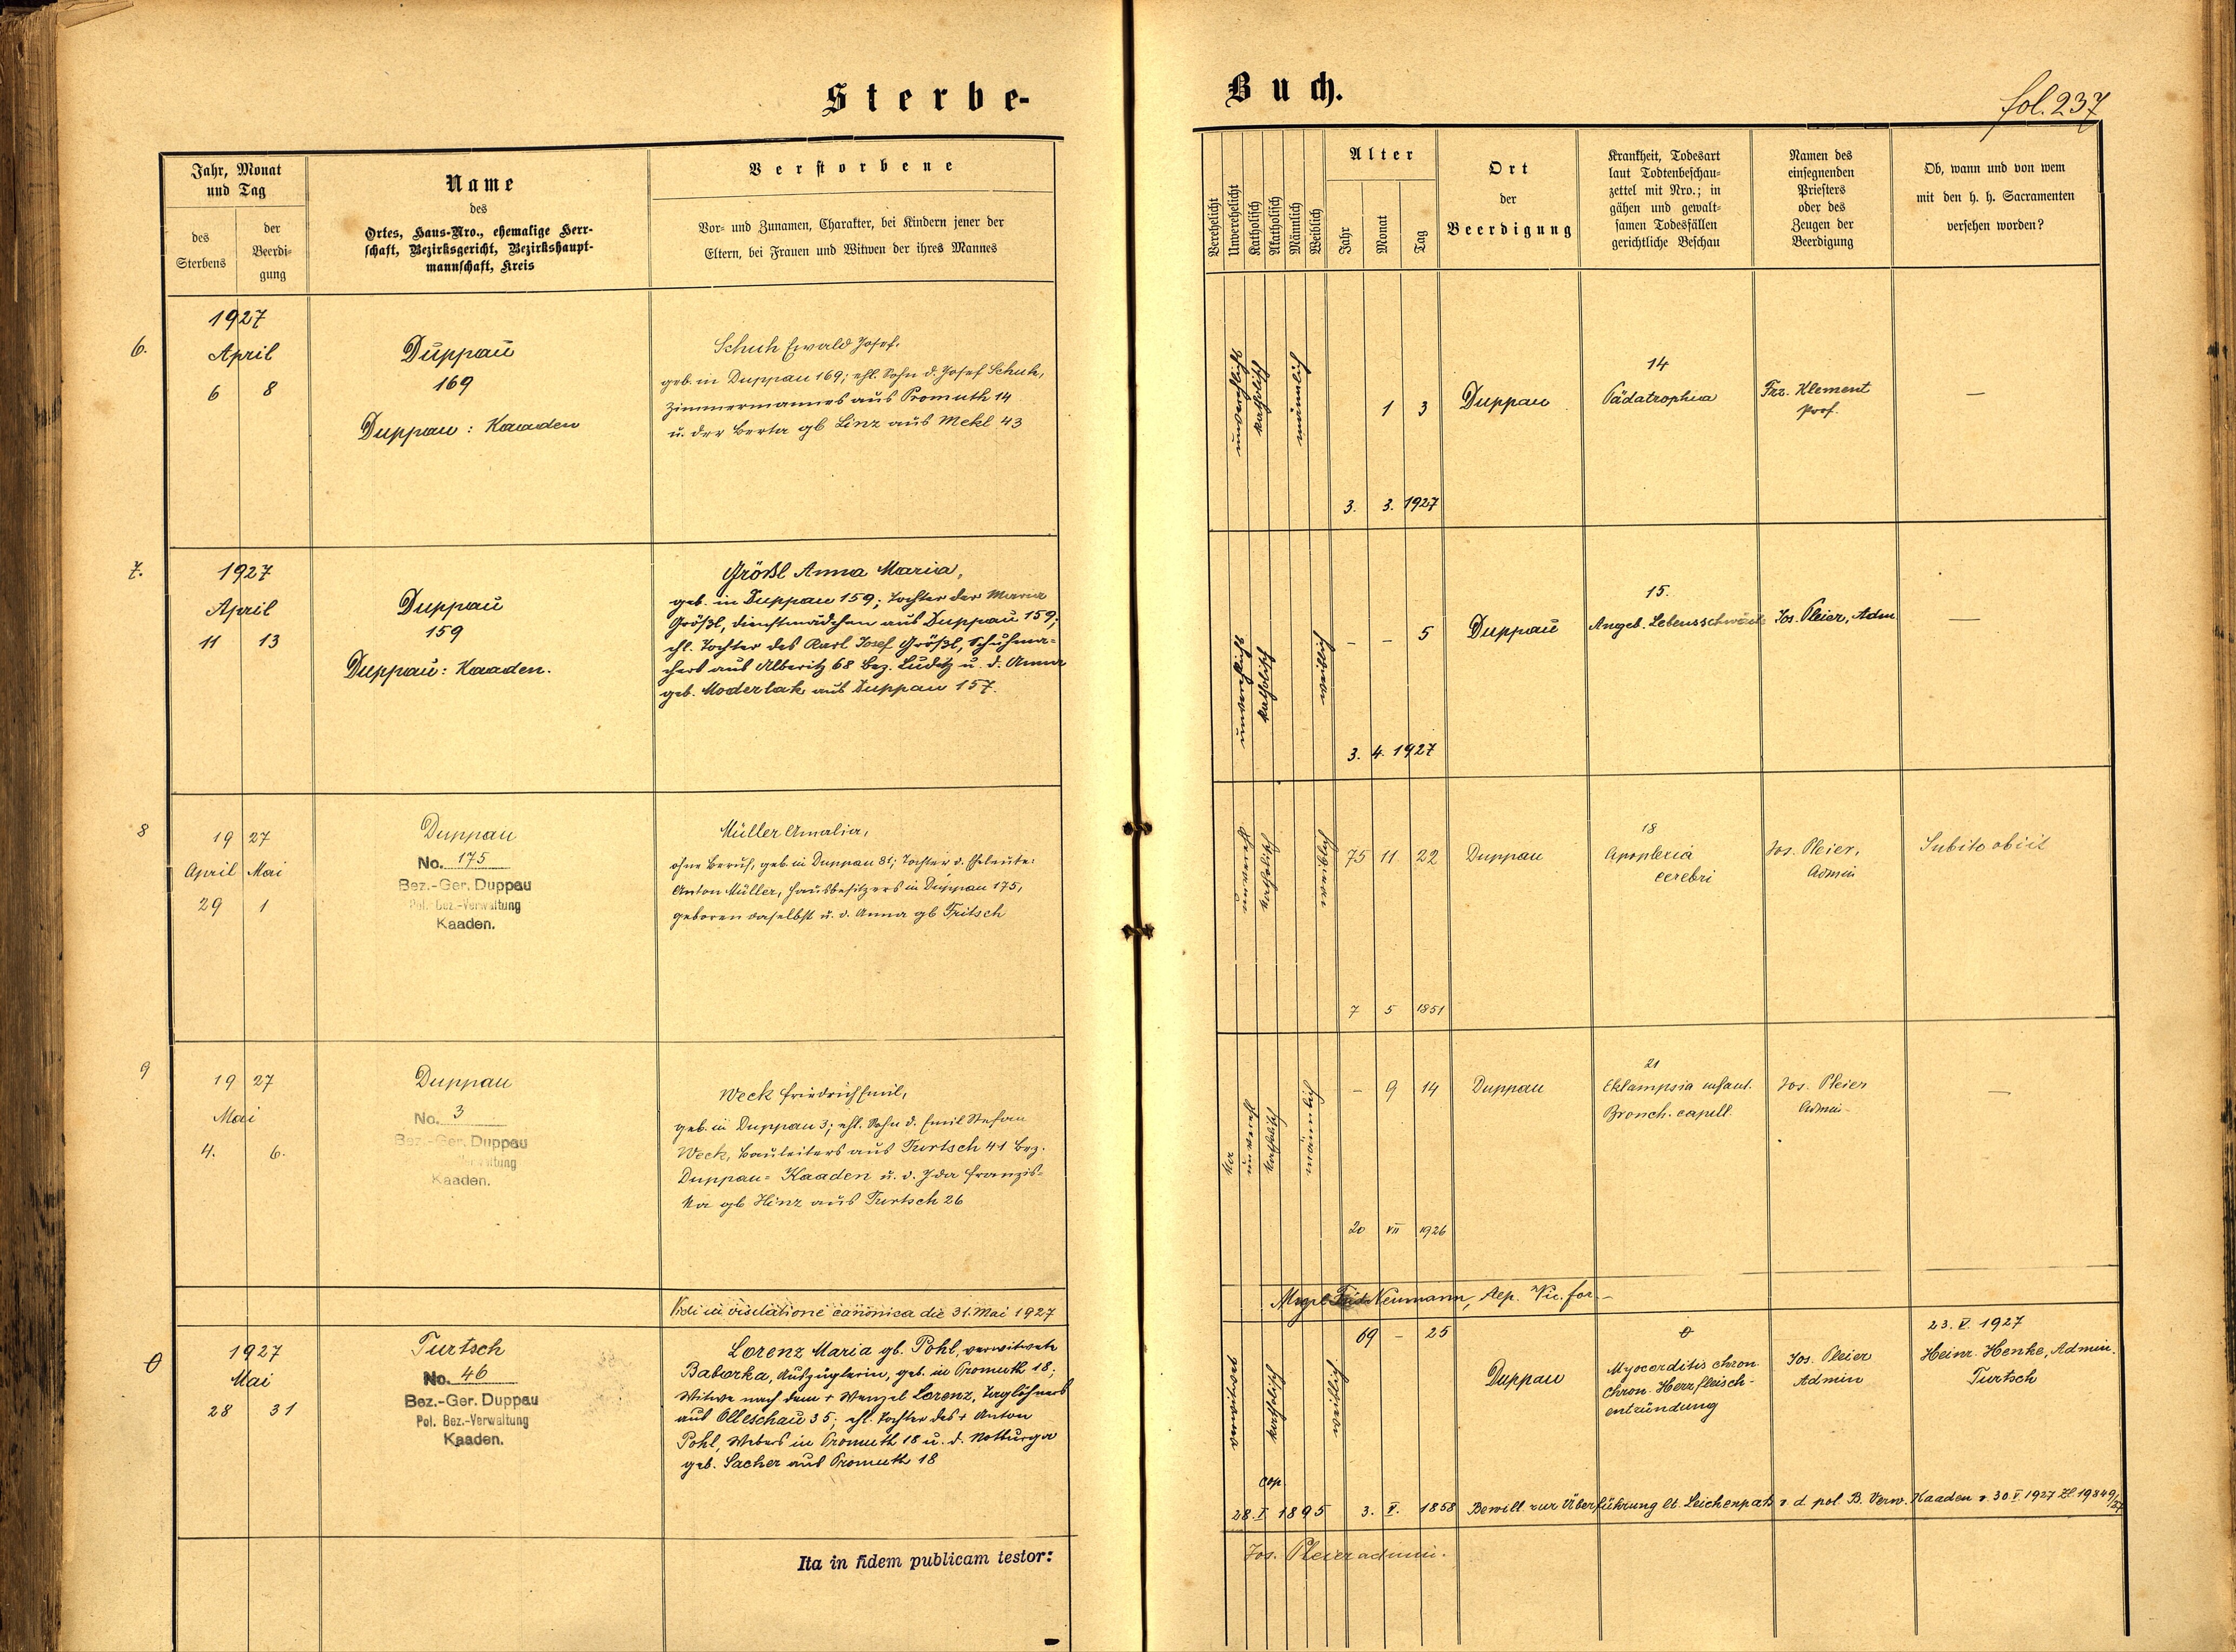 Sterbe-
Jahr, Monat
und Tag
des
Sterbens
der
Beerdi-
gung
Name
des
Ortes, Haus-Nro., ehemalige Herr-
schaft, Bezirksgericht, Bezirkshaupt-
mannschaft, Kreis
Verstorbene
Vor- und Zunamen, Charakter, bei Kindern jener der
Eltern, bei Frauen und Witwen der ihres Mannes
6.
1927
April
6 8
Duppau
169
Duppau : Kaaden
Schuh Ewald Josef.
geb. in Duppau 169; ehl. Sohn d. Josef Schuh,
Zimmermannes aus Promuth 14
u. der Berta gb Linz aus Mekl 43
7.
1927
April
11 13
Duppau
159
Duppau: Kaaden.
Größl Anna Maria,
geb. in Duppau 159; Tochter der Maria
Größl, Dienstmädchen aus Duppau 159;
ehl. Tochter des Karl Josef Größl, Schuhma-
chers aus Alberitz 68 Bez. Luditz u. d. Anna
geb. Moderlak aus Duppau 157.
8
19 27
April Mai
29 1
Duppau
No. 175
Bez.-Ger. Duppau
Pol. Bez.-Verwaltung
Kaaden.
Müller Amalia,
ohne Beruf, geb. in Duppau 81; Tochter d. Eheleute:
Anton Müller, Hausbesitzers in Duppau 175,
geboren daselbst u. d. Anna gb Fritsch
9
19 27
Mai
4. 6.
Duppau
No. 3
Bez.-Ger. Duppau
Verwaltung
Kaaden.
Weck Friedrich Emil,
geb. in Duppau 3; ehl. Sohn d. Emil Stefan
Weck, Bauleiters aus Turtsch 41 Bez.
Duppau- Kaaden u. d. Ida Franzis-
ka gb Hinz aus Turtsch 26
Vidi in visitatione canonica die 31. Mai 1927
0
1927
Mai
28 31
Turtsch
No. 46
Bez.-Ger. Duppau
Pol. Bez.-Verwaltung
Kaaden.
Lorenz Maria gb. Pohl, verwitwete
Baborka, Auszüglerin, geb. in Promuth 18;
Witwe nach dem + Wenzel Lorenz, Taglöhners
aus Olleschau 35; ehl. Tochter des + Anton
Pohl, Webers in Promuth 18 u. d. Notburga
geb. Sacher aus Promuth 18
Ita in fidem publicam testor:
Buch.
fol. 237
Verehelicht
Unverehelicht
Katholisch
Akatholisch
Männlich
Weiblich
Alter
Jahr
Monat
Tag
Ort
der
Beerdigung
Krankheit, Todesart
laut Todtenbeschau-
zettel mit Nro.; in
gähen und gewalt-
samen Todesfällen
gerichtliche Beschau
Namen des
einsegnenden
Priesters
oder des
Zeugen der
Beerdigung
Ob, wann und von wem
mit den h. h. Sacramenten
versehen worden?
unverehelicht
katholisch
männlich
1 3
Duppau
14
Pädatrophia
Frz. Klement
Prof.
—
3. 3. 1927
unverehelicht
katholisch
weiblich
– – 5
Duppau
15.
Angeb. Lebensschwäche
Jos. Pleier, Adm
—
3. 4. 1927
unvereh
katholisch
weiblich
75 11 22
Duppau
18
Apoplexia
cerebri
Jos. Pleier,
Admin
Subito obiit
7 5 1851
unvereh
katholisch
männlich
– 9 14
Duppau
21
Eklampsia infant.
Bronch. capill.
Jos. Pleier
Admin
—
20 VII 1926
Neumann, Aep. Vic. for.
verwitwet
katholisch
weiblich
69 – 25
Duppau
0
Myocarditis chron.
chron. Herzfleisch-
entzündung
Jos. Pleier
Admin
23. V. 1927
Heinr. Henke, Admin.
Turtsch
cop.
28. I 1895
3. V. 1858
Bewill. zur Überführung lt. Leichenpaß v. d. pol B. Verw. Kaaden v. 30 V 1927 Zl. 19849/27
Jos. Pleier admin.